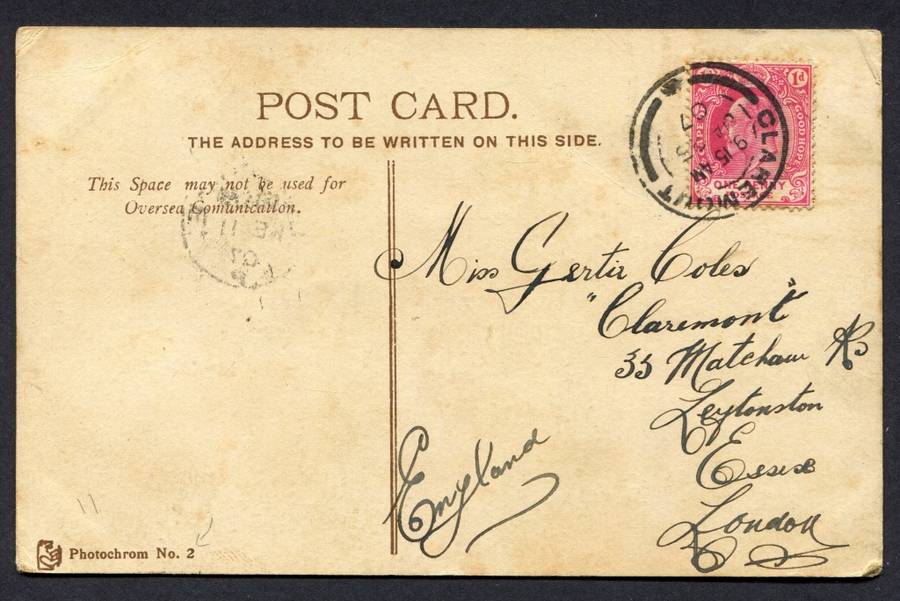 POST CARD.
THE ADDRESS TO BE WRITTEN ON THIS SIDE.
This Space may not be used for
Oversea Comunication.
CLAREMONT
9.15 AM
07
1d
GOOD HOPE
ONE PENNY
Miss Gertie Coles
"Claremont"
33 Matcham Rd
Leytonston
Essex
London
England
Photochrom No. 2